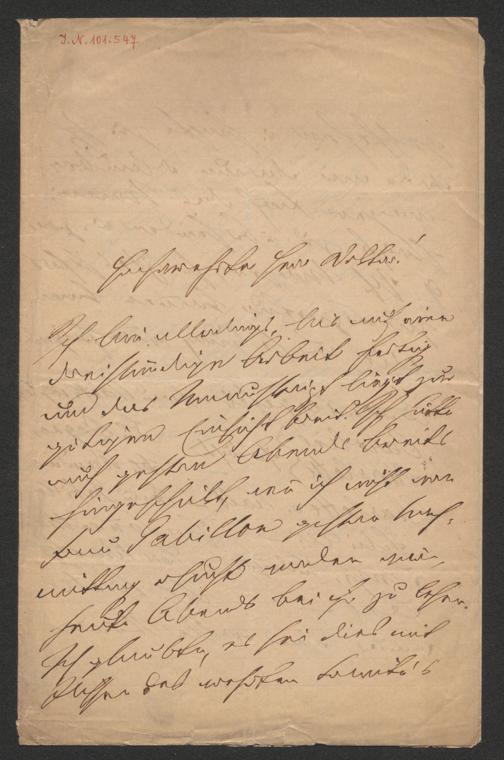 J.N. 101.547
Hochverehrter Herr Doktor!
Ich bin allerdings, bis auf eine
dreistündige Arbeit fertig
und das Manuskript liegt zur
Einsicht bereit. Ich hätte
auch gestern Abends bereits
hingeschickt, wenn ich nicht von
Frau Gabillon gestern Nach-
mittag ersucht worden wäre,
heute Abends bei ihr zu lesen.
Ich glaubte, es sei dies mit
Wissen des werthen Comité's